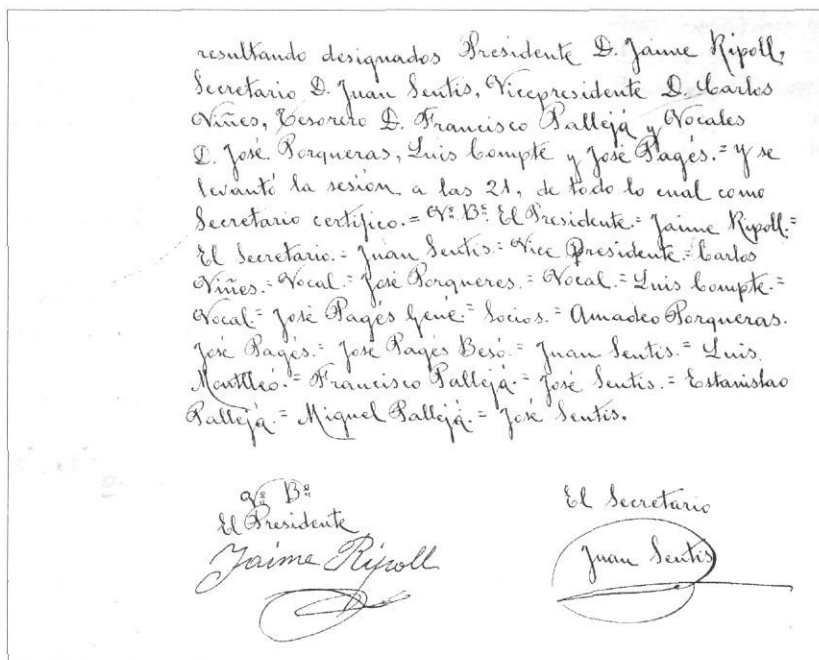 resultando designados Presidente D. Jaime Ripoll,
Secretario D. Juan Sentis, Vicepresidente D. Carlos
Viñes, Tesorero D. Francisco Pallejá y Vocales
D. José Porqueras, Luis Compte y José Pagés.= y se
levantó la sesión, a las 21, de todo lo cual como
Secretario certifico.= Vº Bº El Presidente.= Jaime Ripoll.=
El Secretario.= Juan Sentis.= Vice Presidente.= Carlos
Viñes.= Vocal.= José Porqueres.= Vocal.= Luis Compte.=
Vocal= José Pagés Gené.= Socios.= Amadeo Porqueras.
José Pagés.= José Pagés Besó.= Juan Sentis.= Luis
Montlleó.= Francisco Pallejá.= José Sentis.= Estanislao
Pallejá.= Miquel Pallejá.= José Sentis.
Vº Bº
El Presidente
Jaime Ripoll
El Secretario
Juan Sentis